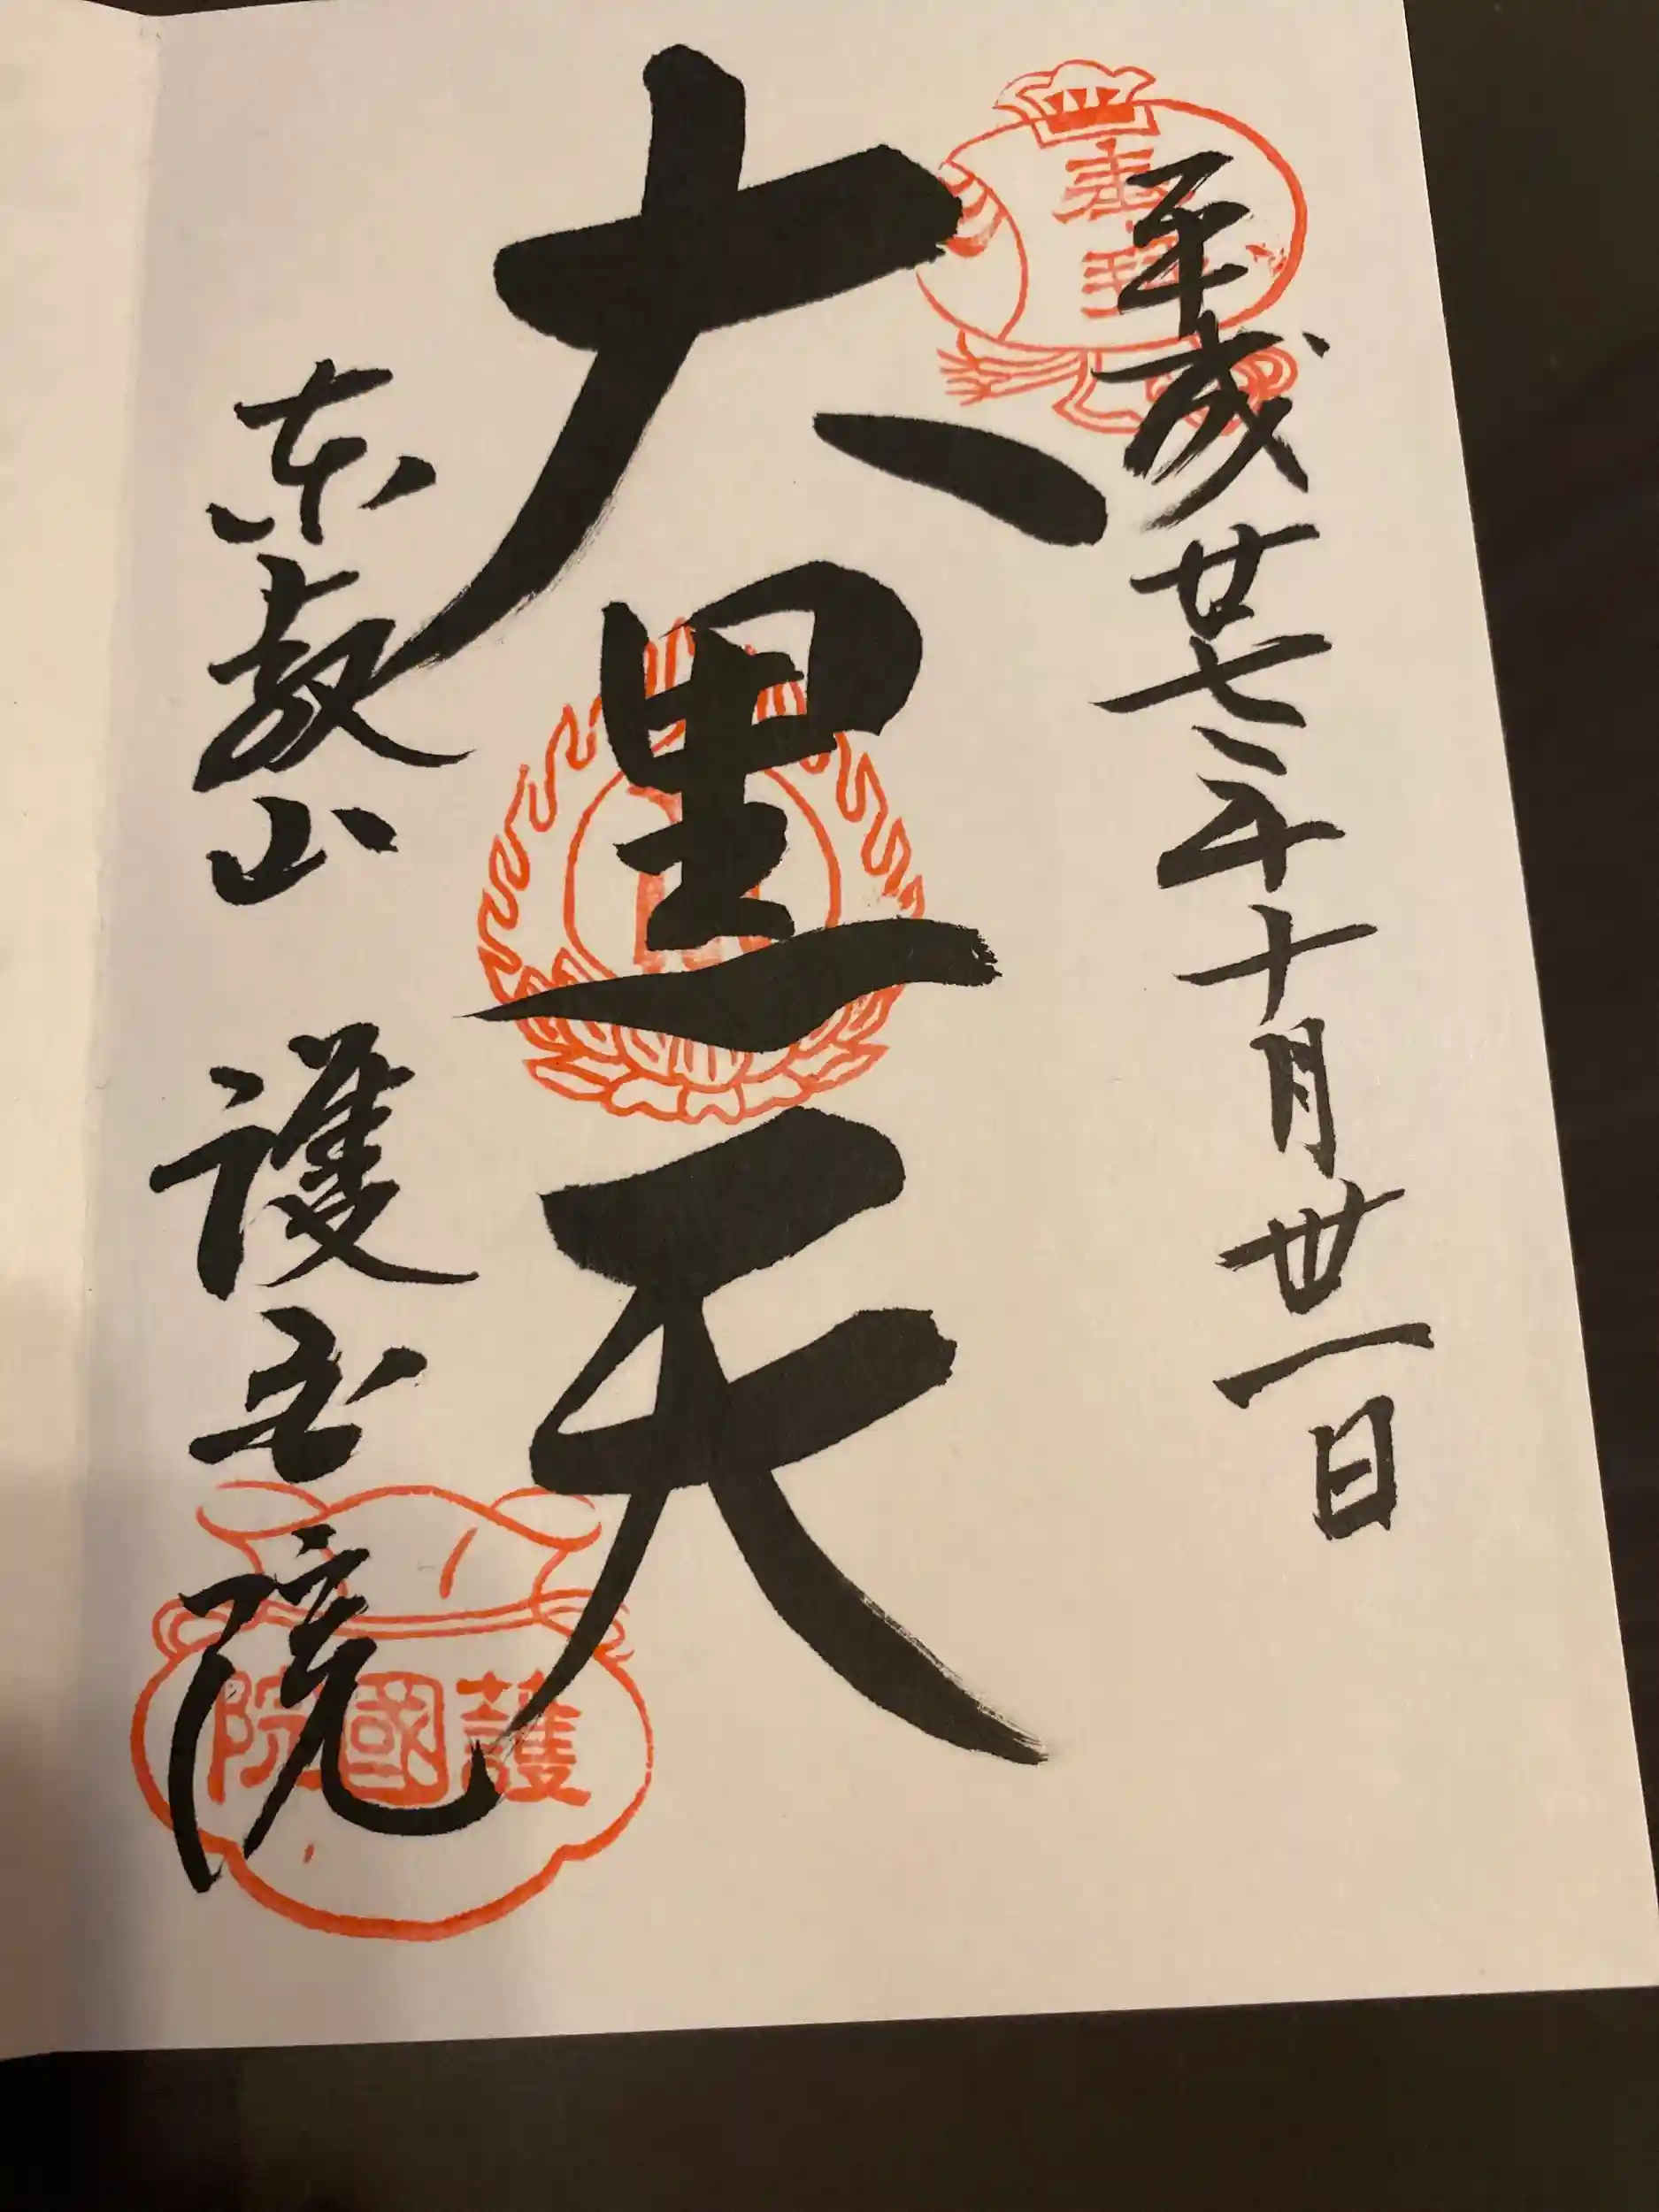 奉拝
平成廿七年十月卅一日
大黒天
東叡山 護国院
護國院